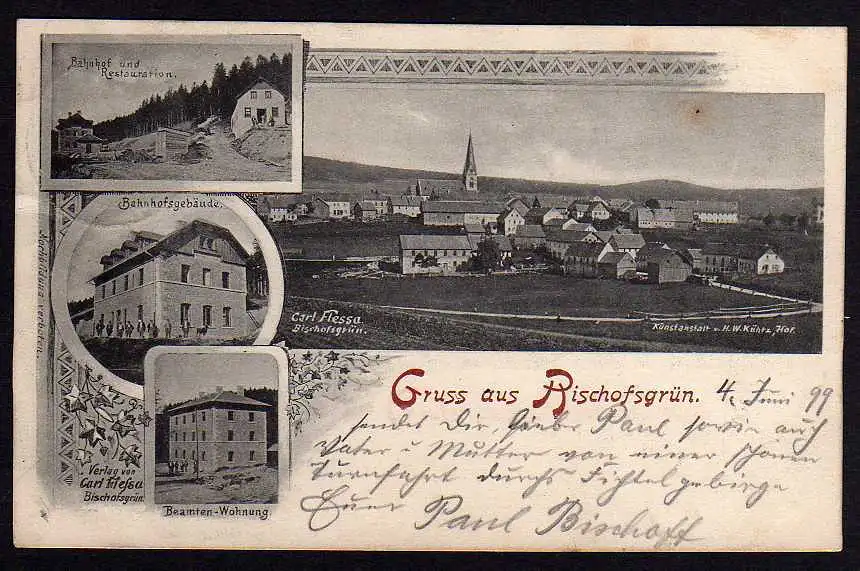 Bahnhof und
Restauration.
Bahnhofsgebäude.
Nachbildung verboten.
Carl Flessa
Bischofsgrün.
Kunstanstalt v. H.W. Kührz, Hof.
Gruss aus Bischofsgrün. 4. Juni 99
sendet Dir, lieber Paul sowie auch
Vater u Mutter von einer schönen
Turnfahrt durchs Fichtelgebirge
Euer Paul Bischoff
Verlag von
Carl Flessa
Bischofsgrün.
Beamten-Wohnung